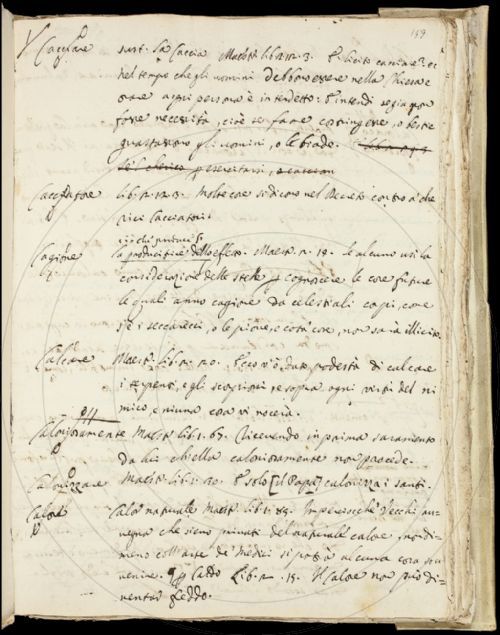 159
Cacciare sust. la Caccia. Maestr. lib. 2. 12. 3. È licito cacciare? ec
nel tempo che gli uomini debbono essere nella Chiesa e
orare a ogni persona è interdetto: s'intendi se già non
fosse necessità, cioè se fame costringesse, o bestie
guastassono gli uomini, o le biade.
perseverarsi, o cacciari
Cacciatore lib. 2. 12. 3. Molte cose si dicono nel Decreto contro a' che
rici Cacciatori.
Cagione la producitrice dello effetto. Maestr. 2. 14. Se alcuno usi la
considerazione delle stelle p cognoscere le cose future
le quali anno cagione da celestiali copi, come
se i seccarecci, o le piove, e cotai cose, non sarà illicito.
Calcare Maestr. lib. 2. 20. Ecco v'ò dato podestà di calcare
i serpenti, e gli scorpioni, e sopra ogni virtù del ni
mico, e niuna cosa vi nocerà.
Caloniosamente Maestr. lib. 1. 67. Ricevendo in prima saramento
da lui ch'ella caloniosamente non procede.
Calonizzare Maestr. lib. 1. 20. E solo [il Papa] calonizza i santi.
Calore Calor naturale Maestr. lib. 1. 84. Imperciocchè i vecchi av-
vegna che sieno privati del naturale calore, nondi-
meno coll'arte de' Medici si possa alcuna cosa sov
venire. Catto Lib. 2. 15. Il Calore non può di-
ventar freddo.